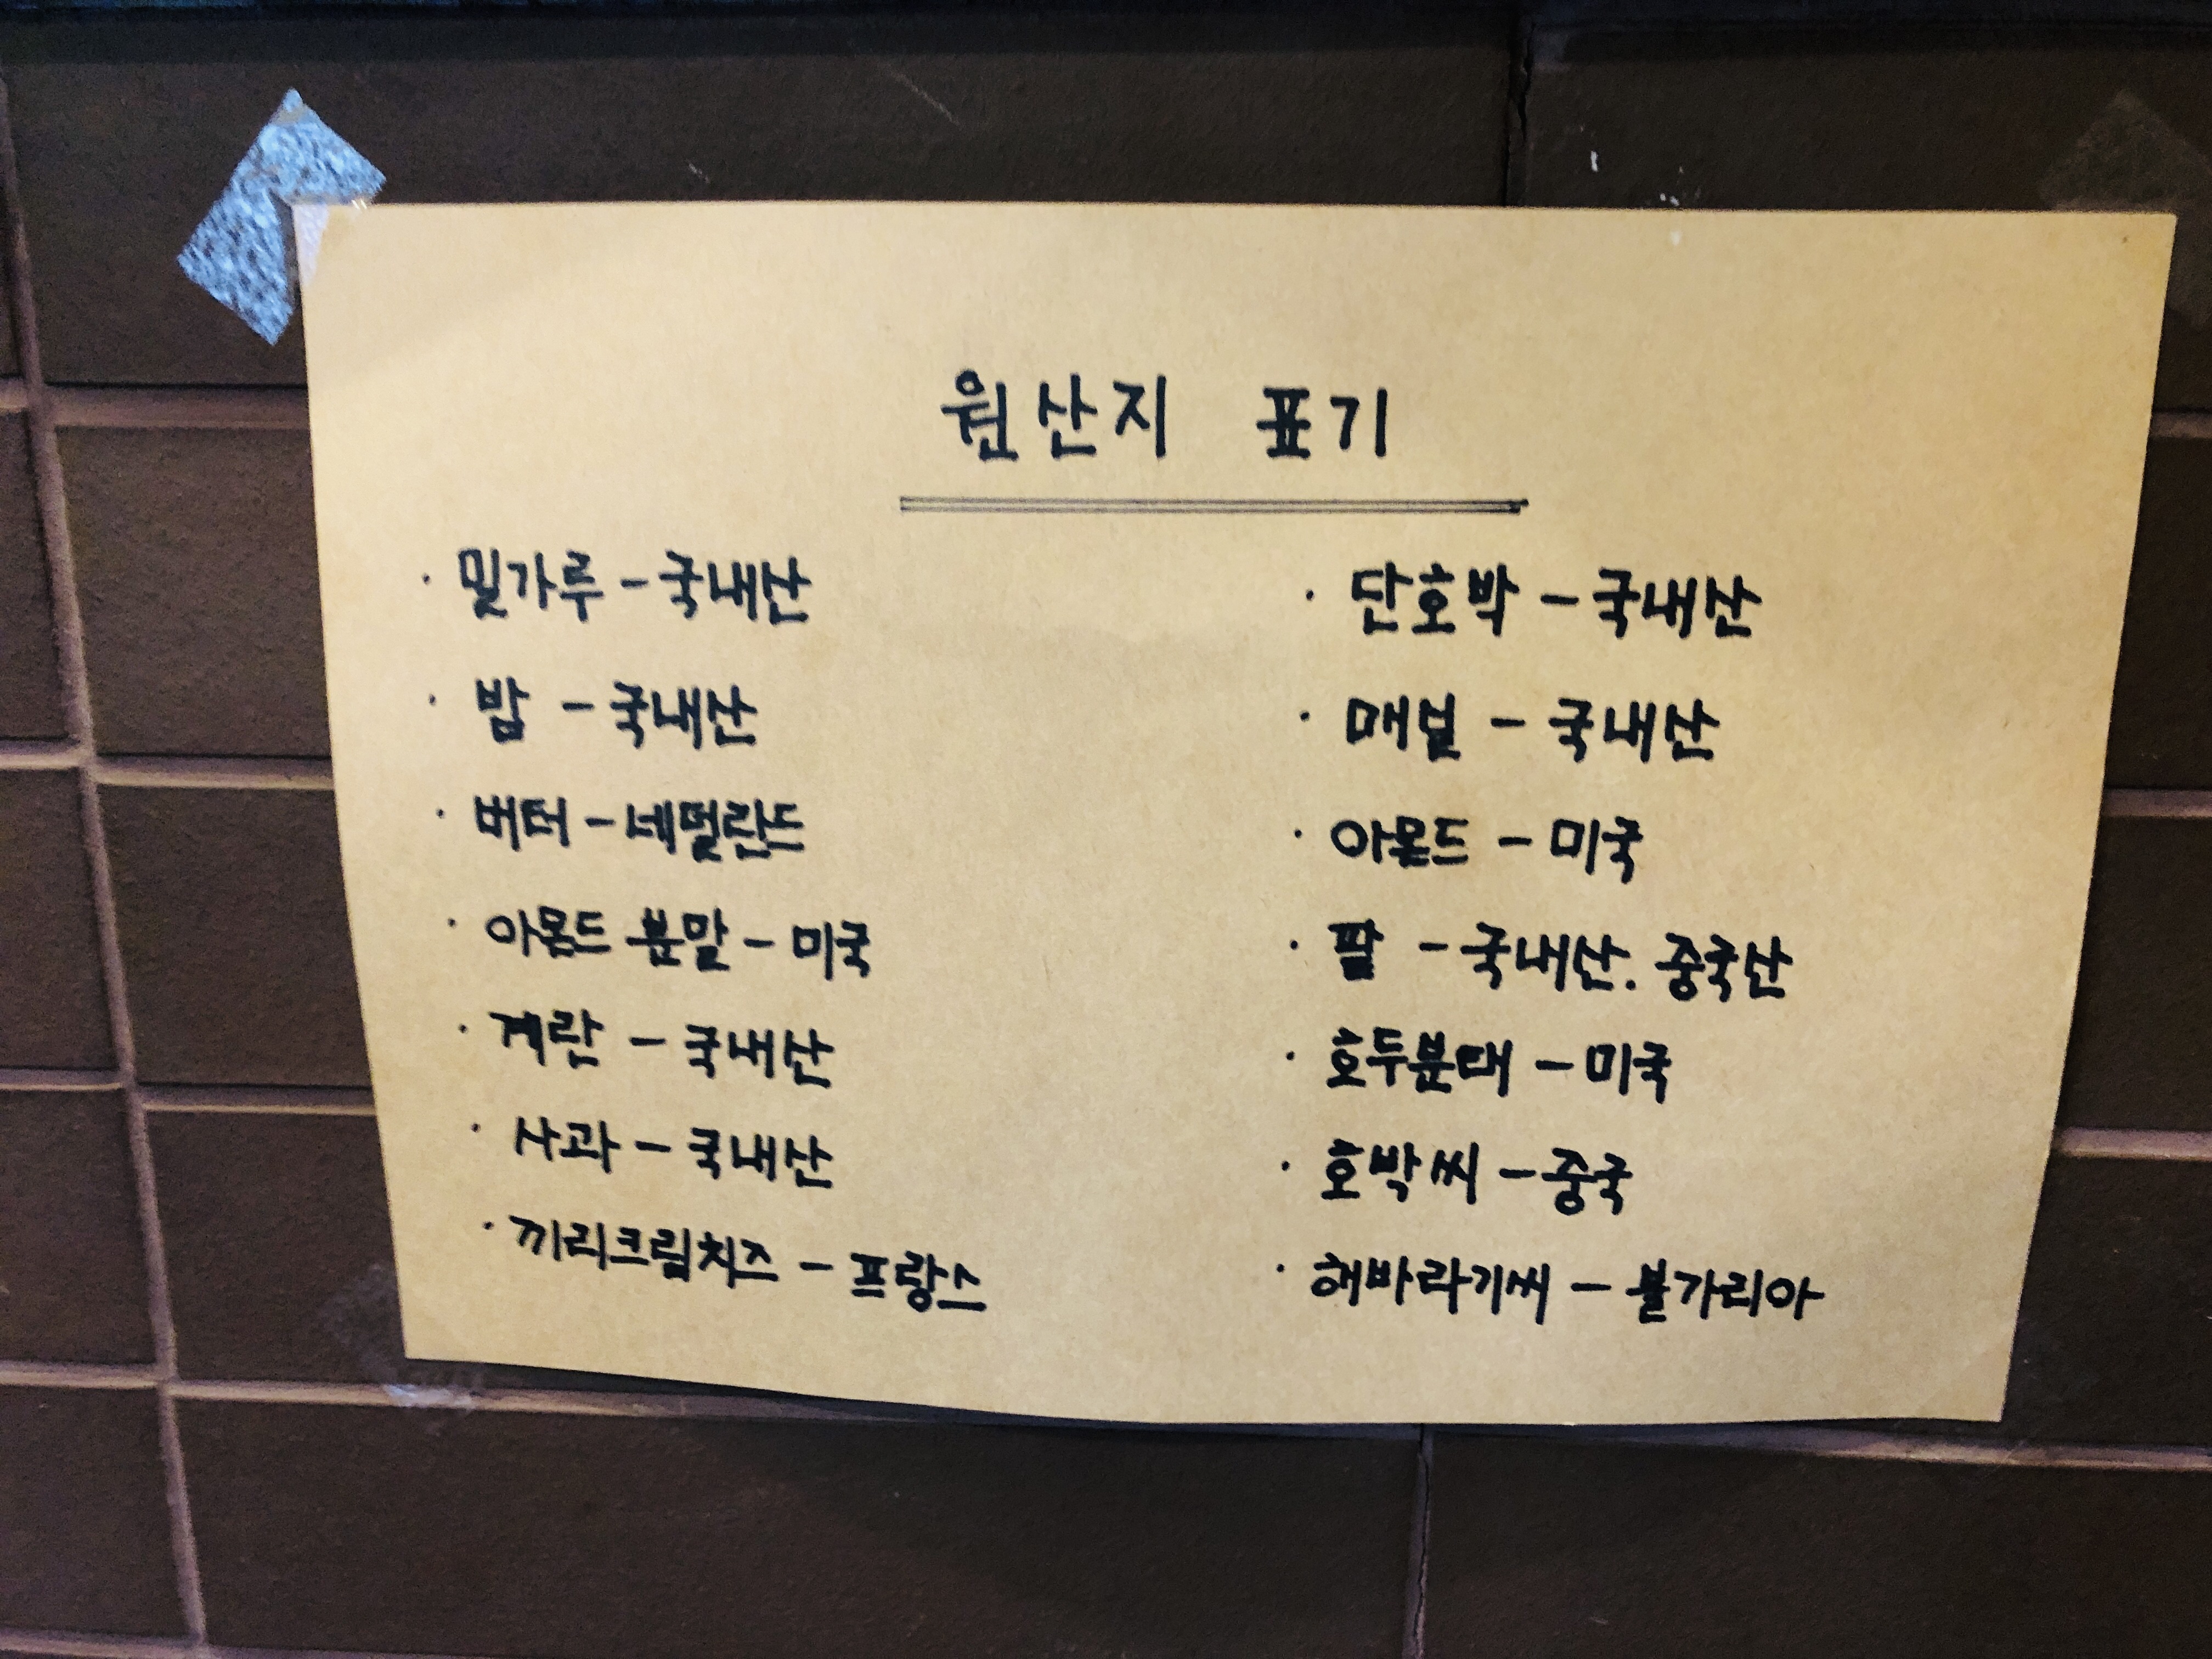 원산지 표기
· 밀가루 - 국내산
· 밤 - 국내산
· 버터 - 네덜란드
· 아몬드 분말 - 미국
· 계란 - 국내산
· 사과 - 국내산
· 끼리크림치즈 - 프랑스
· 단호박 - 국내산
· 매실 - 국내산
· 아몬드 - 미국
· 팥 - 국내산. 중국산
· 호두분태 - 미국
· 호박씨 - 중국
· 해바라기씨 - 불가리아